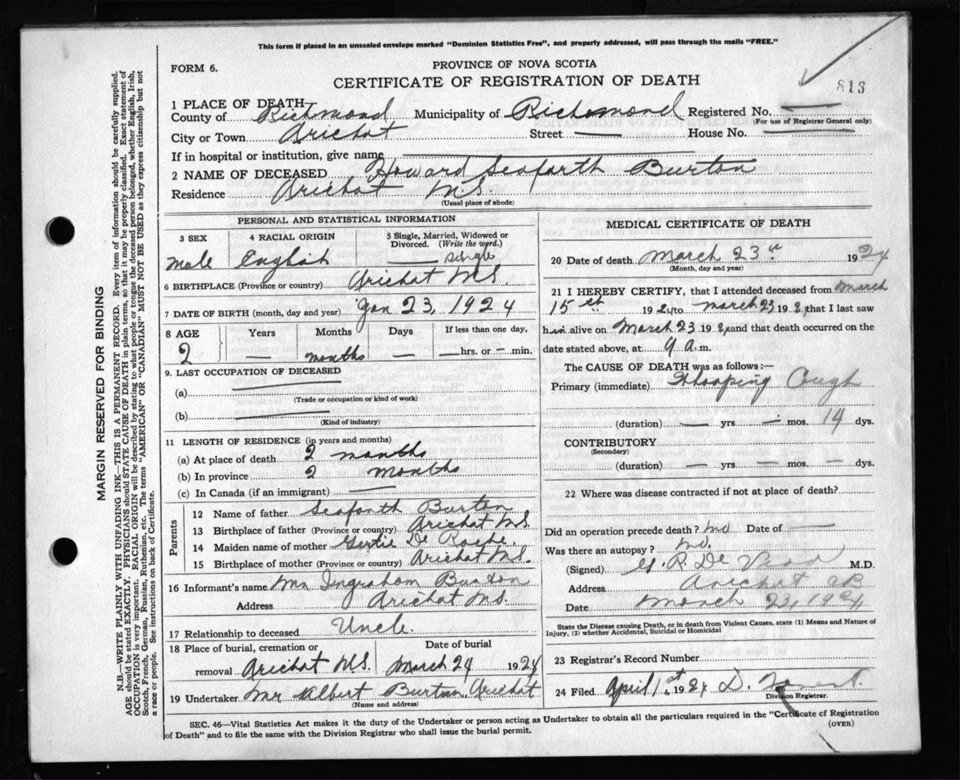 This form if placed in an unsealed envelope marked "Dominion Statistics Free", and properly addressed, will pass through the mails "FREE."
FORM 6.
PROVINCE OF NOVA SCOTIA
CERTIFICATE OF REGISTRATION OF DEATH
813
1 PLACE OF DEATH
County of Richmond Municipality of Richomond Registered No.
(For use of Registrar General only)
City or Town Arichat Street — House No. —
If in hospital or institution, give name
2 NAME OF DECEASED Howard Seaforth Burton
Residence Arichat N.S.
(Usual place of abode)
PERSONAL AND STATISTICAL INFORMATION
3 SEX 4 RACIAL ORIGIN 5 Single, Married, Widowed or Divorced. (Write the word.)
male English single
6 BIRTHPLACE (Province or country) Arichat N.S.
7 DATE OF BIRTH (month, day and year) Jan 23, 1924
8 AGE Years Months Days If less than one day,
2 — months — — hrs. or — min.
9. LAST OCCUPATION OF DECEASED
(a)
(Trade or occupation or kind of work)
(b)
(Kind of industry)
11 LENGTH OF RESIDENCE (in years and months)
(a) At place of death 2 months
(b) In province 2 months
(c) In Canada (if an immigrant) —
Parents
12 Name of father Seaforth Burton
13 Birthplace of father (Province or country) Arichat N.S.
14 Maiden name of mother Gertie De Roche.
15 Birthplace of mother (Province or country) Arichat N.S.
16 Informant's name Mr Ingraham Burton
Address Arichat N.S.
17 Relationship to deceased Uncle.
18 Place of burial, cremation or removal Arichat N.S. Date of burial March 24 1924
19 Undertaker Mr Albert Burton, Arichat
(Name and address)
MEDICAL CERTIFICATE OF DEATH
20 Date of death March 23rd 1924
(Month, day and year)
21 I HEREBY CERTIFY, that I attended deceased from March
15th 192 to March 23 192, that I last saw
h im alive on March 23 192, and that death occurred on the
date stated above, at 9 a. m.
The CAUSE OF DEATH was as follows:—
Primary (immediate) Whooping Cough
(duration) — yrs — mos. 14 dys.
CONTRIBUTORY
(Secondary)
(duration) — yrs. — mos. — dys.
22 Where was disease contracted if not at place of death?
Did an operation precede death? No Date of —
Was there an autopsy? No.
(Signed) M.D.
Address Arichat CB
Date March 23, 1924
State the Disease causing Death, or in death from Violent Causes, state (1) Means and Nature of
Injury, (2) whether Accidental, Suicidal or Homicidal
23 Registrar's Record Number
24 Filed April 1st 1924 D.
Division Registrar.
SEC. 46—Vital Statistics Act makes it the duty of the Undertaker or person acting as Undertaker to obtain all the particulars required in the "Certificate of Registration
of Death" and to file the same with the Division Registrar who shall issue the burial permit.
(OVER)
MARGIN RESERVED FOR BINDING
N.B.—WRITE PLAINLY WITH UNFADING INK—THIS IS A PERMANENT RECORD. Every item of information should be carefully supplied.
AGE should be stated EXACTLY. PHYSICIANS should STATE CAUSE OF DEATH in plain terms, so that it may be properly classified. Exact statement of
OCCUPATION is very important. RACIAL ORIGIN will be described by stating to what people or tongue the deceased person belonged, whether English, Irish,
Scotch, French, German, Russian, Ruthenian, etc. The terms "AMERICAN" or "CANADIAN" MUST NOT BE USED as they express citizenship but not
a race or people. See instructions on back of Certificate.